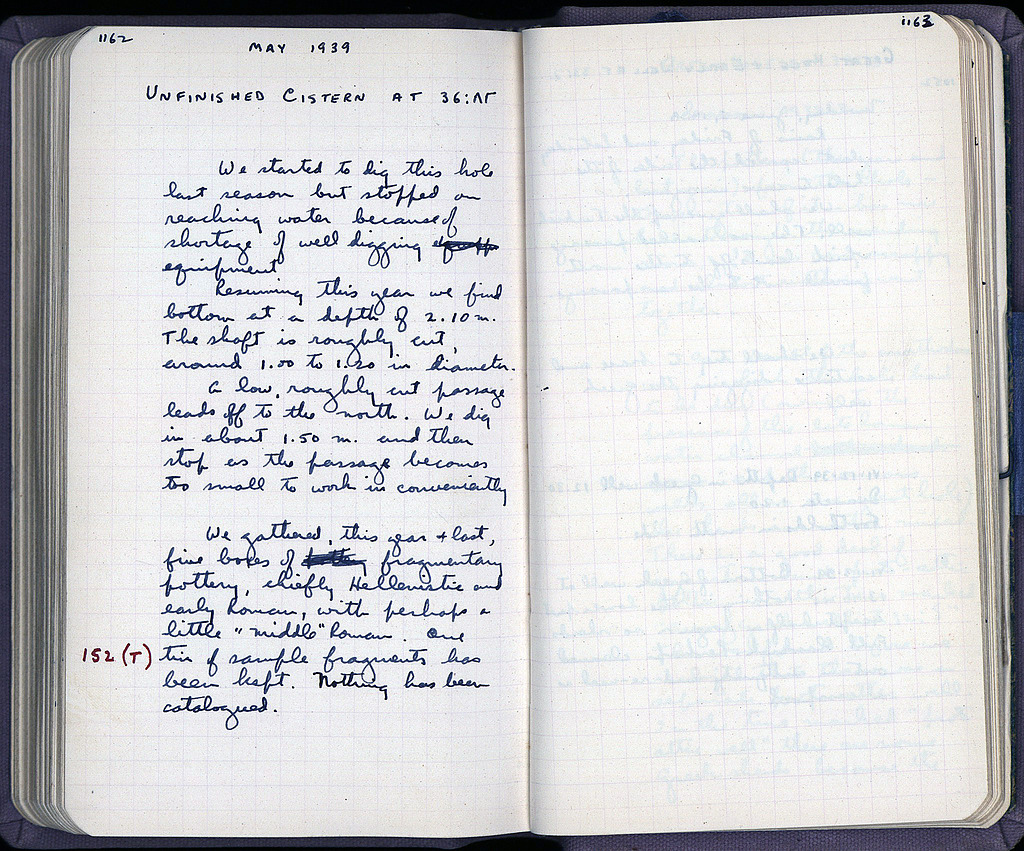 1162
MAY 1939
UNFINISHED CISTERN AT 36:ΛΓ
We started to dig this hole
last season but stopped on
reaching water because of
shortage of well digging
equipment
Resuming this year we find
bottom at a depth of 2.10 m.
The shaft is roughly cut,
around 1.00 to 1.20 in diameter.
A low, roughly cut passage
leads off to the north. We dig
in about 1.50 m. and then
stop as the passage becomes
too small to work in conveniently
We gathered, this year + last,
five boxes of fragmentary
pottery, chiefly Hellenistic and
early Roman, with perhaps a
little "middle" Roman. One
152 (T) tin of sample fragments has
been kept. Nothing has been
catalogued.
1163